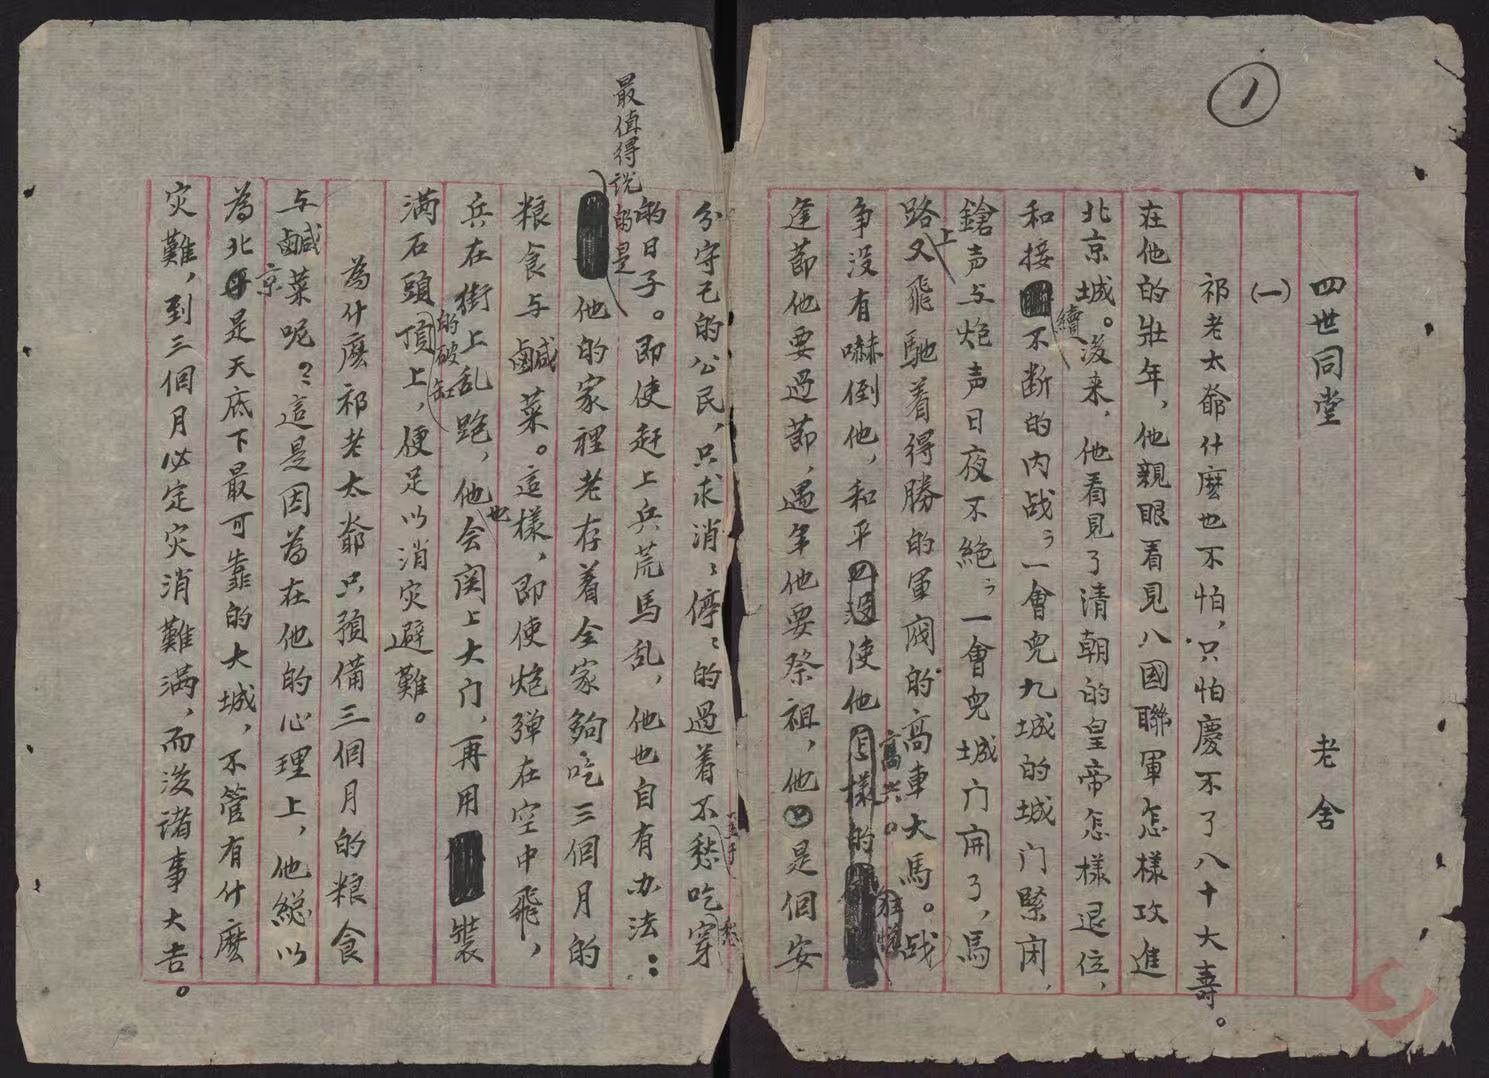 1
四世同堂　老舍
(一)
祁老太爺什麽也不怕，只怕慶不了八十大壽。
在他的壯年，他親眼看見八國聯軍怎樣攻進
北京城。後来，他看見了清朝的皇帝怎樣退位，
和接續不断的内战；一會兒九城的城门緊闭，
鎗声与炮声日夜不絶；一會兒城门開了，馬
路上又飛馳着得勝的軍阀的高車大馬。战
争没有嚇倒他，和平使他高兴。
逢節他要过節，遇年他要祭祖，他是個安
分守己的公民，只求消消停停的過着不至于愁吃愁穿
的日子。即使赶上兵荒馬乱，他也自有办法：
最值得说的是他的家裡老存着全家夠吃三個月的
粮食与鹹菜。這樣，即使炮弹在空中飛，
兵在街上乱跑，他也会関上大门，再用裝
满石頭的破缸頂上，便足以消灾避難。
為什麽祁老太爺只預備三個月的粮食
与鹹菜呢？這是因為在他的心理上，他総以
為北京是天底下最可靠的大城，不管有什麽
灾難，到三個月必定灾消難满，而後诸事大吉。